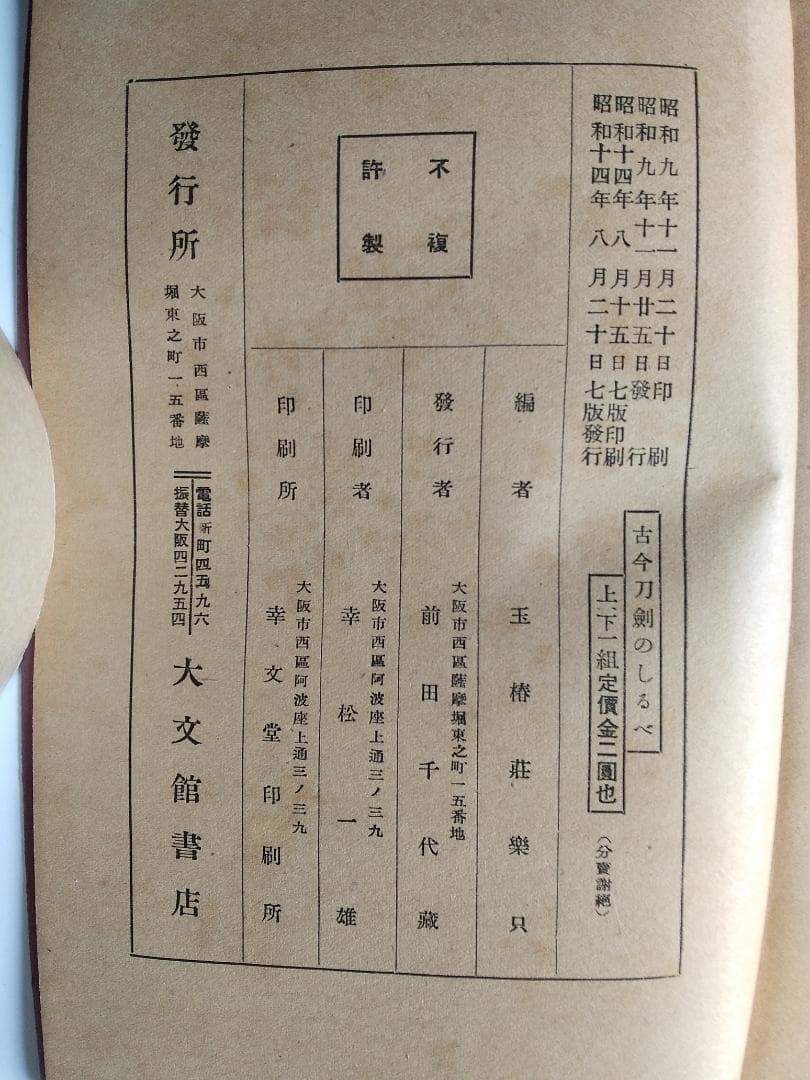 昭和九年十一月二十日印刷
昭和九年十一月廿五日發行
昭和十四年八月十五日七版印刷
昭和十四年八月二十日七版發行
古今刀劍のしるべ
上、下一組定價金二圓也
（分賣謝絕）
不許
複製
編者 玉椿莊樂只
大阪市西區薩摩堀東之町一五番地
發行者 前田千代藏
大阪市西區阿波座上通三ノ三九
印刷者 幸松一雄
大阪市西區阿波座上通三ノ三九
印刷所 幸文堂印刷所
發行所
大阪市西區薩摩
堀東之町一五番地
電話新町四五九六
振替大阪四二九五四
大文館書店